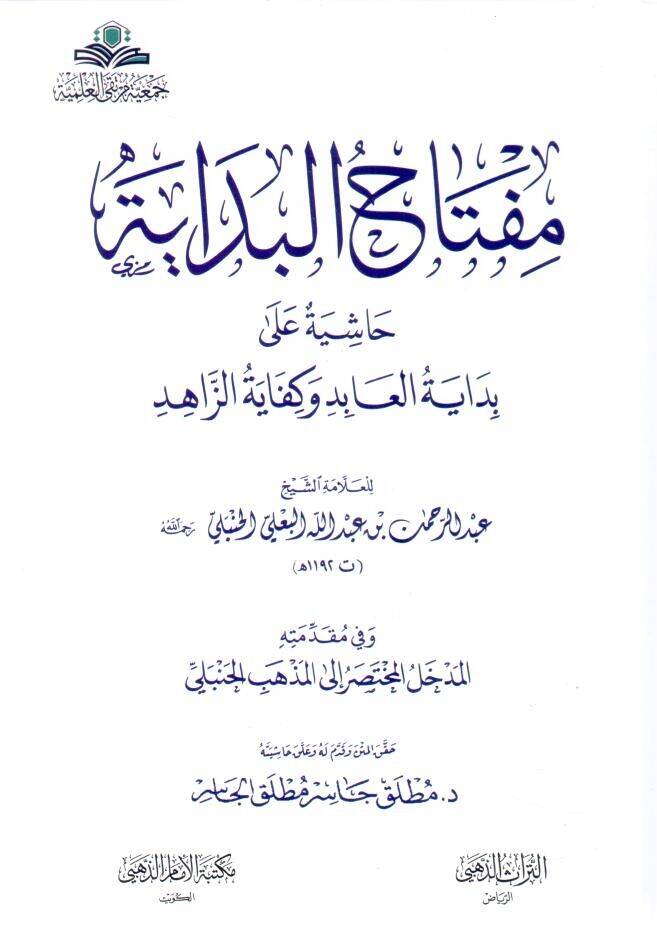 جَمْعِيَّة مُرْتَقَى العِلْمِيَّة
مِفْتَاحُ البِدَايَةِ
حَاشِيَةٌ عَلَى
بِدَايَةُ العَابِدِ وَكِفَايَةُ الزَّاهِدِ
لِلعَلَّامَةِ الشَّيْخِ
عَبْدِ الرَّحْمٰنِ بْنِ عَبْدِ اللهِ البَعْلِيِّ الحَنْبَلِيِّ رَحِمَهُ اللهُ
(ت ١١٩٢هـ)
وَفِي مُقَدِّمَتِهِ
المَدْخَلُ المُخْتَصَرُ إِلَى المَذْهَبِ الحَنْبَلِيِّ
حَقَّقَ المَتْنَ وَقَدَّمَ لَهُ وَعَلَّقَ حَاشِيَتَهُ
د. مُطْلَق جَاسِر مُطْلَق الجَاسِر
التُّرَاثُ الذَّهَبِيُّ
الرِّيَاض
مَكْتَبَةُ الإِمَامِ الذَّهَبِيِّ
الكُوَيْت